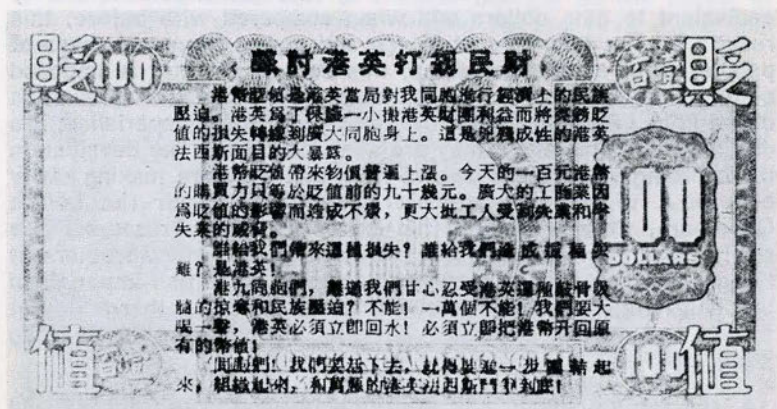 貶 100 100 百員 貶
聲討港英打刼民財
港幣貶值是港英當局對我同胞進行經濟上的民族
壓迫。港英爲了保護一小撮港英財團利益而將英鎊貶
值的損失轉嫁到廣大同胞身上。這是兇殘成性的港英
法西斯面目的大暴露。
港幣貶值帶來物價普遍上漲。今天的一百元港幣
的購買力只等於貶值前的九十幾元。廣大的工商業因
爲貶值的影響而造成不景，更大批工人受到失業和半
失業的威脅。
誰給我們帶來這種損失？誰給我們造成這種災
難？是港英！
港九同胞們，難道我們甘心忍受港英這種敲骨吸
髓的掠奪和民族壓迫？不能！一萬個不能！我們要大
喝一聲，港英必須立即回水！必須立即把港幣升回原
有的幣值！
同胞們！我們要活下去，就得進一步團結起
來，組織起來，和萬惡的港英法西斯鬥爭到底！
100
DOLLARS
值 100 值